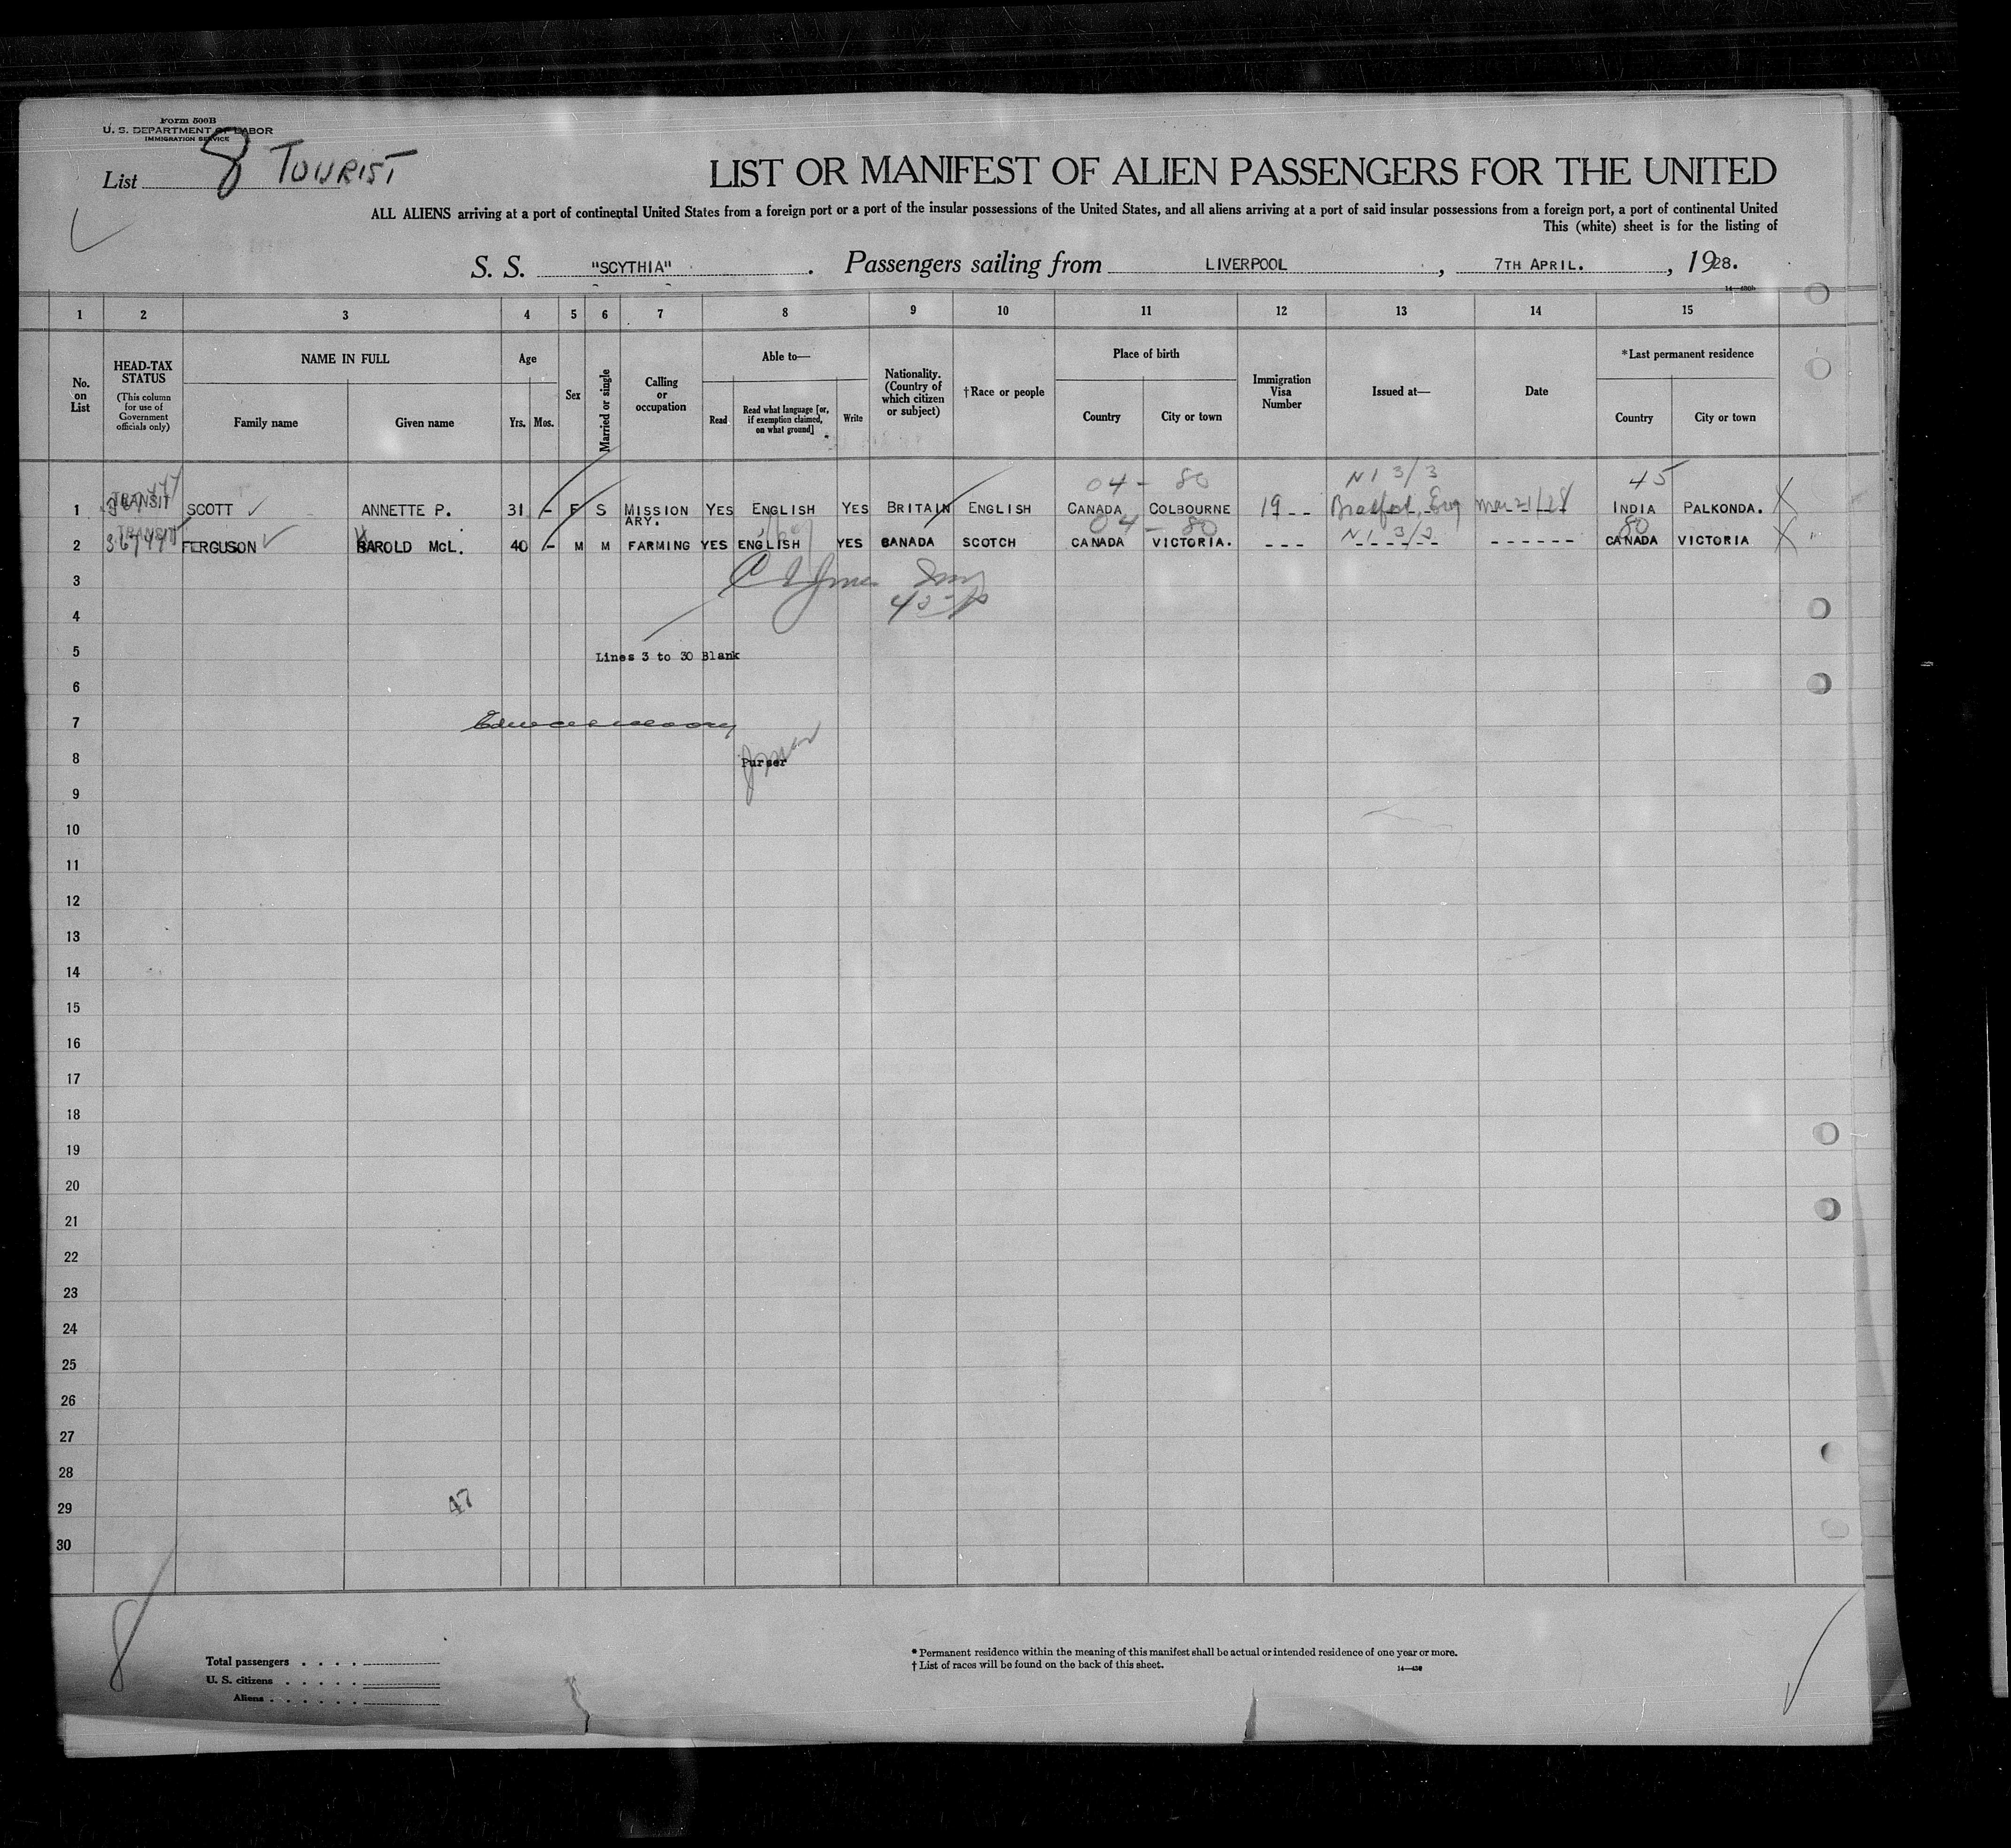 Form 500B
U. S. DEPARTMENT OF LABOR
IMMIGRATION SERVICE
List 8 TOURIST
LIST OR MANIFEST OF ALIEN PASSENGERS FOR THE UNITED
ALL ALIENS arriving at a port of continental United States from a foreign port or a port of the insular possessions of the United States, and all aliens arriving at a port of said insular possessions from a foreign port, a port of continental United
This (white) sheet is for the listing of
S. S. "SCYTHIA". Passengers sailing from LIVERPOOL, 7TH APRIL., 1928.
1 2 3 4 5 6 7 8 9 10 11 12 13 14 15
No. on List
HEAD-TAX STATUS (This column for use of Government officials only)
NAME IN FULL
Family name Given name
Age
Yrs. Mos.
Sex
Married or single
Calling or occupation
Able to—
Read Read what language [or, if exemption claimed, on what ground] Write
Nationality. (Country of which citizen or subject)
†Race or people
Place of birth
Country City or town
Immigration Visa Number
Issued at—
Date
*Last permanent residence
Country City or town
04 - 80 N1 3/3 45
1 TRANSIT SCOTT ANNETTE P. 31 - F S MISSIONARY. YES ENGLISH YES BRITAIN ENGLISH CANADA COLBOURNE 19 -- Bradford, Eng Mar 21/28 INDIA PALKONDA.
04 - 80 N1 3/3 80
2 TRANSIT FERGUSON HAROLD McL. 40 - M M FARMING YES ENGLISH YES CANADA SCOTCH CANADA VICTORIA. --- ------ ------ CANADA VICTORIA
3
4
5 Lines 3 to 30 Blank
6
7
8 Purser
9
10
11
12
13
14
15
16
17
18
19
20
21
22
23
24
25
26
27
28
29 47
30
8
Total passengers . . . .
U. S. citizens . . . . .
Aliens . . . . . .
* Permanent residence within the meaning of this manifest shall be actual or intended residence of one year or more.
† List of races will be found on the back of this sheet.